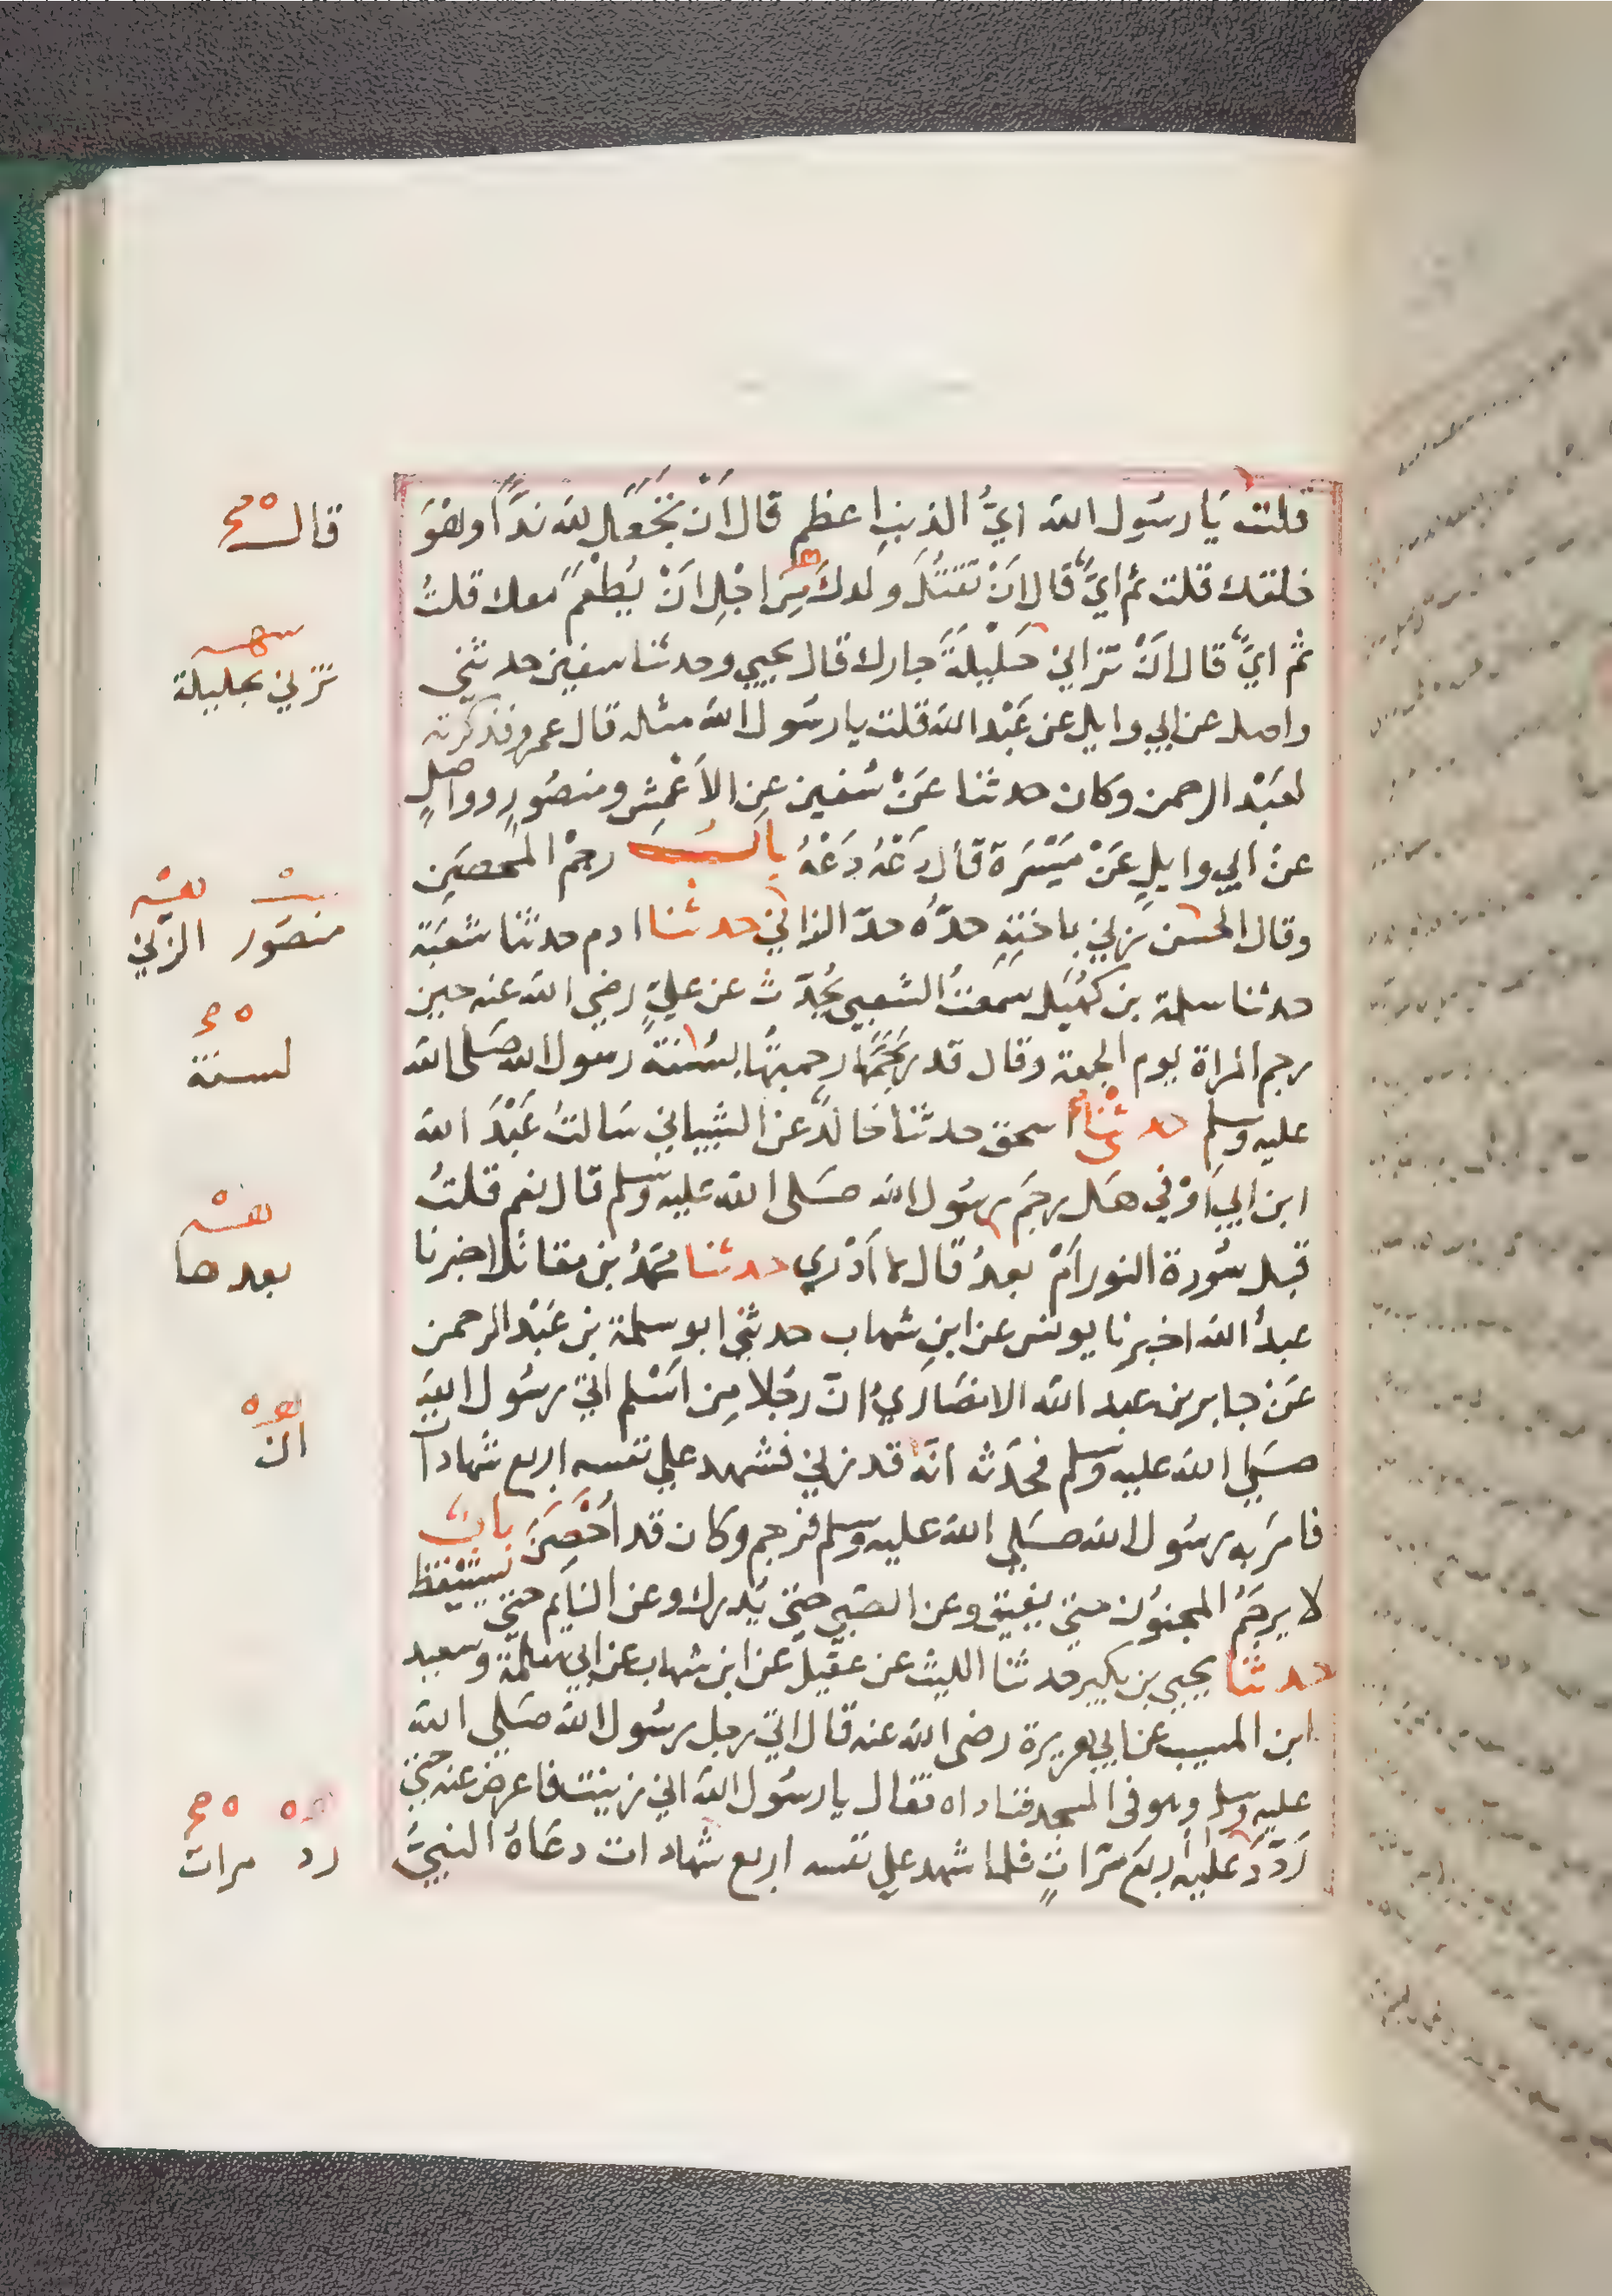 قلت يَا رسُول الله ايُّ الذنبِ اعظم قال اَنْ تَجْعَلَ لله نِدًّا وهُوَ
خلقك قلت ثم ايُّ قال اَنْ تَقْتُلَ ولدكَ مِنَ اجْلِ اَنْ يُطْعَمَ معك قلتُ
ثم ايُّ قال اَنْ تزاني حَليْلَةَ جارك قال يحيي وحدثنا سفين حدثني
واصل عن ابي وايل عن عَبْد الله قلت يا رسُول الله مثله قال عمرو فذكرته
لعَبْد الرحمن وكان حدثنا عَنْ سُفين عنِ الاَعْمش ومنصُورٍ وواصلٍ
عنْ ابي وايلٍ عَنْ مَيْسَرة قَال دَعْهُ دَعْهُ بابُ رجْم المحصَن
وقال الحسن مَن زني باختِهِ حدُّه حدّ الزاني حدثنا ادم حدثنا شعبَة
حدثنا سلمة بن كُهَيل سَمعتُ الشعبي يُحدّث عن عليٍّ رضي الله عنه حين
رجم المراة يوم الجمعة وقال قد رَجَمْتُها رجمتها بسُنّة رسول الله صَلى الله
عليه وسلم حدثنا اسحق حدثنا خالدٌ عن الشيباني سَالتُ عَبْدَ الله
ابن ابي اَوْفي هَل رجَم رسُول الله صَلى الله عليه وسلم قال نعم قلتُ
قبل سُورة النور اَمْ بعدُ قال لا اَدْري حدثنا محمّدُ بن مقاتل اخبرنا
عبدُ الله اخبرنا يونس عن ابنِ شهاب حدثني ابو سلمة بن عَبْد الرحمن
عَنْ جابر بن عبد الله الانصَاريِّ انّ رجُلا مِن اسْلم اتي رسُول الله
صَلي الله عليه وسلم فحدّثه انّه قد زني فشهد علي نفسه اربع شهادات
فامَر به رسُول الله صَلي الله عليه وسلم فرجم وكان قد اُحْصِنَ بابُ
لا يرجَمُ المجنوُن حتي يفيق وعن الصّبي حتي يُدرك وعن النايم حتي يستيقظ
حدثنا يحيي بن بكير حدثنا الليث عن عقيل عن ابن شهاب عن ابي سلمة وسعيد
ابن المسيب عن ابي هريرة رضي الله عنه قال اتي رجل رسُول الله صَلى الله
عليه وسلم وهو في المسجد فناداه فقال يا رسُول الله اني زنيت فاعرض عنه حتي
رَدّدَ عليه اربعَ مَرّاتٍ فلما شهد علي نفسه اربع شهادات دعَاهُ النبيُّ
قال
تزني بحليلة
منصور الزني
لسنة
بعدها
ان
رد مرات